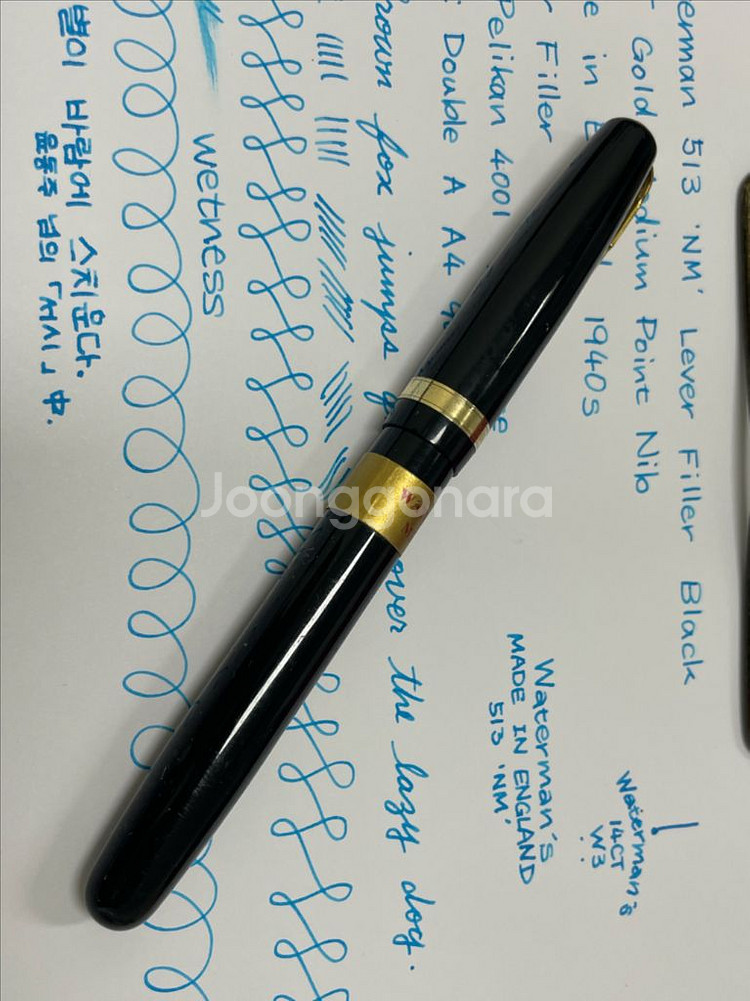 erman 513 'NM' Lever Filler Black
Gold dium Point Nib
e in 1940s
Filler
Pelikan 4001
Double A A4
rown fox jumps over the lazy dog.
wetness
별이 바람에 스치운다.
윤동주 님의 「서시」 中.
Waterman's
MADE IN ENGLAND
513 'NM'
Waterman's
14CT
W3
Joonggonara